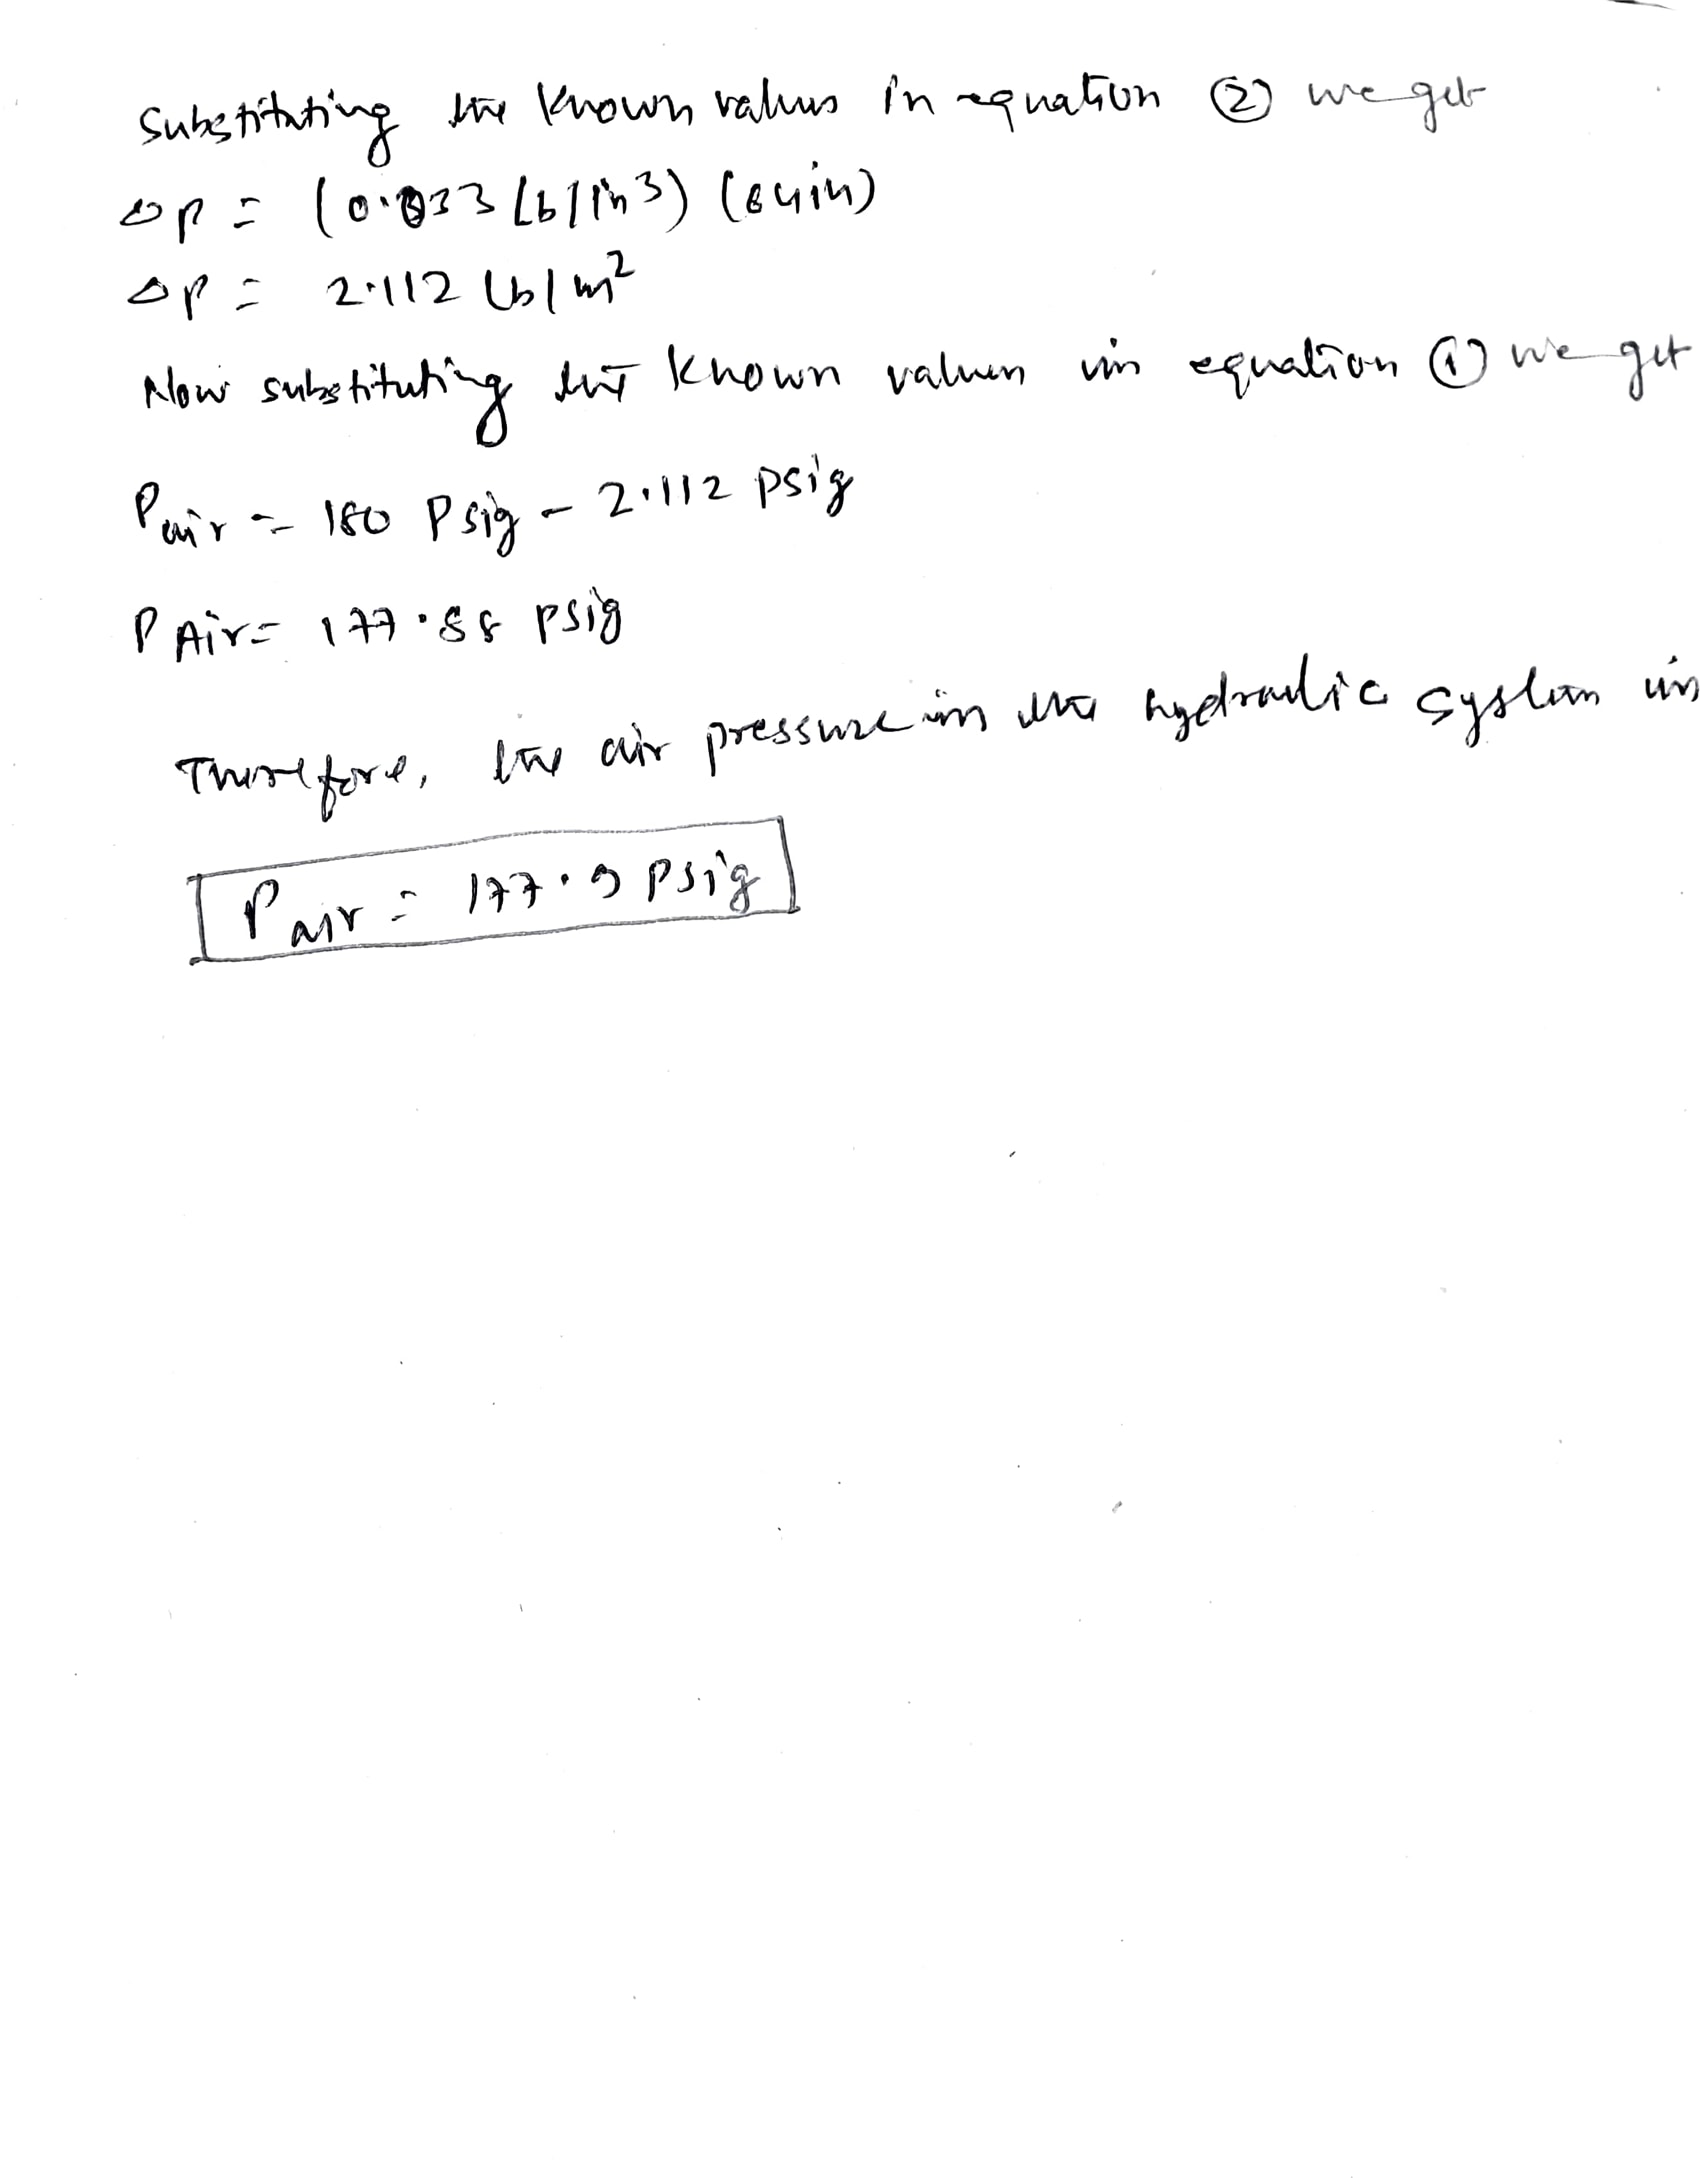 Substituting the known values in equation ② we get
Δp = (0.033 lb/in³) (64in)
Δp = 2.112 lb/in²
Now substituting the known values in equation ① we get
Pair = 180 Psig - 2.112 psig
PAir = 177.88 psig
Therefore, the air pressure in the hydraulic system is
Pair = 177.9 psig